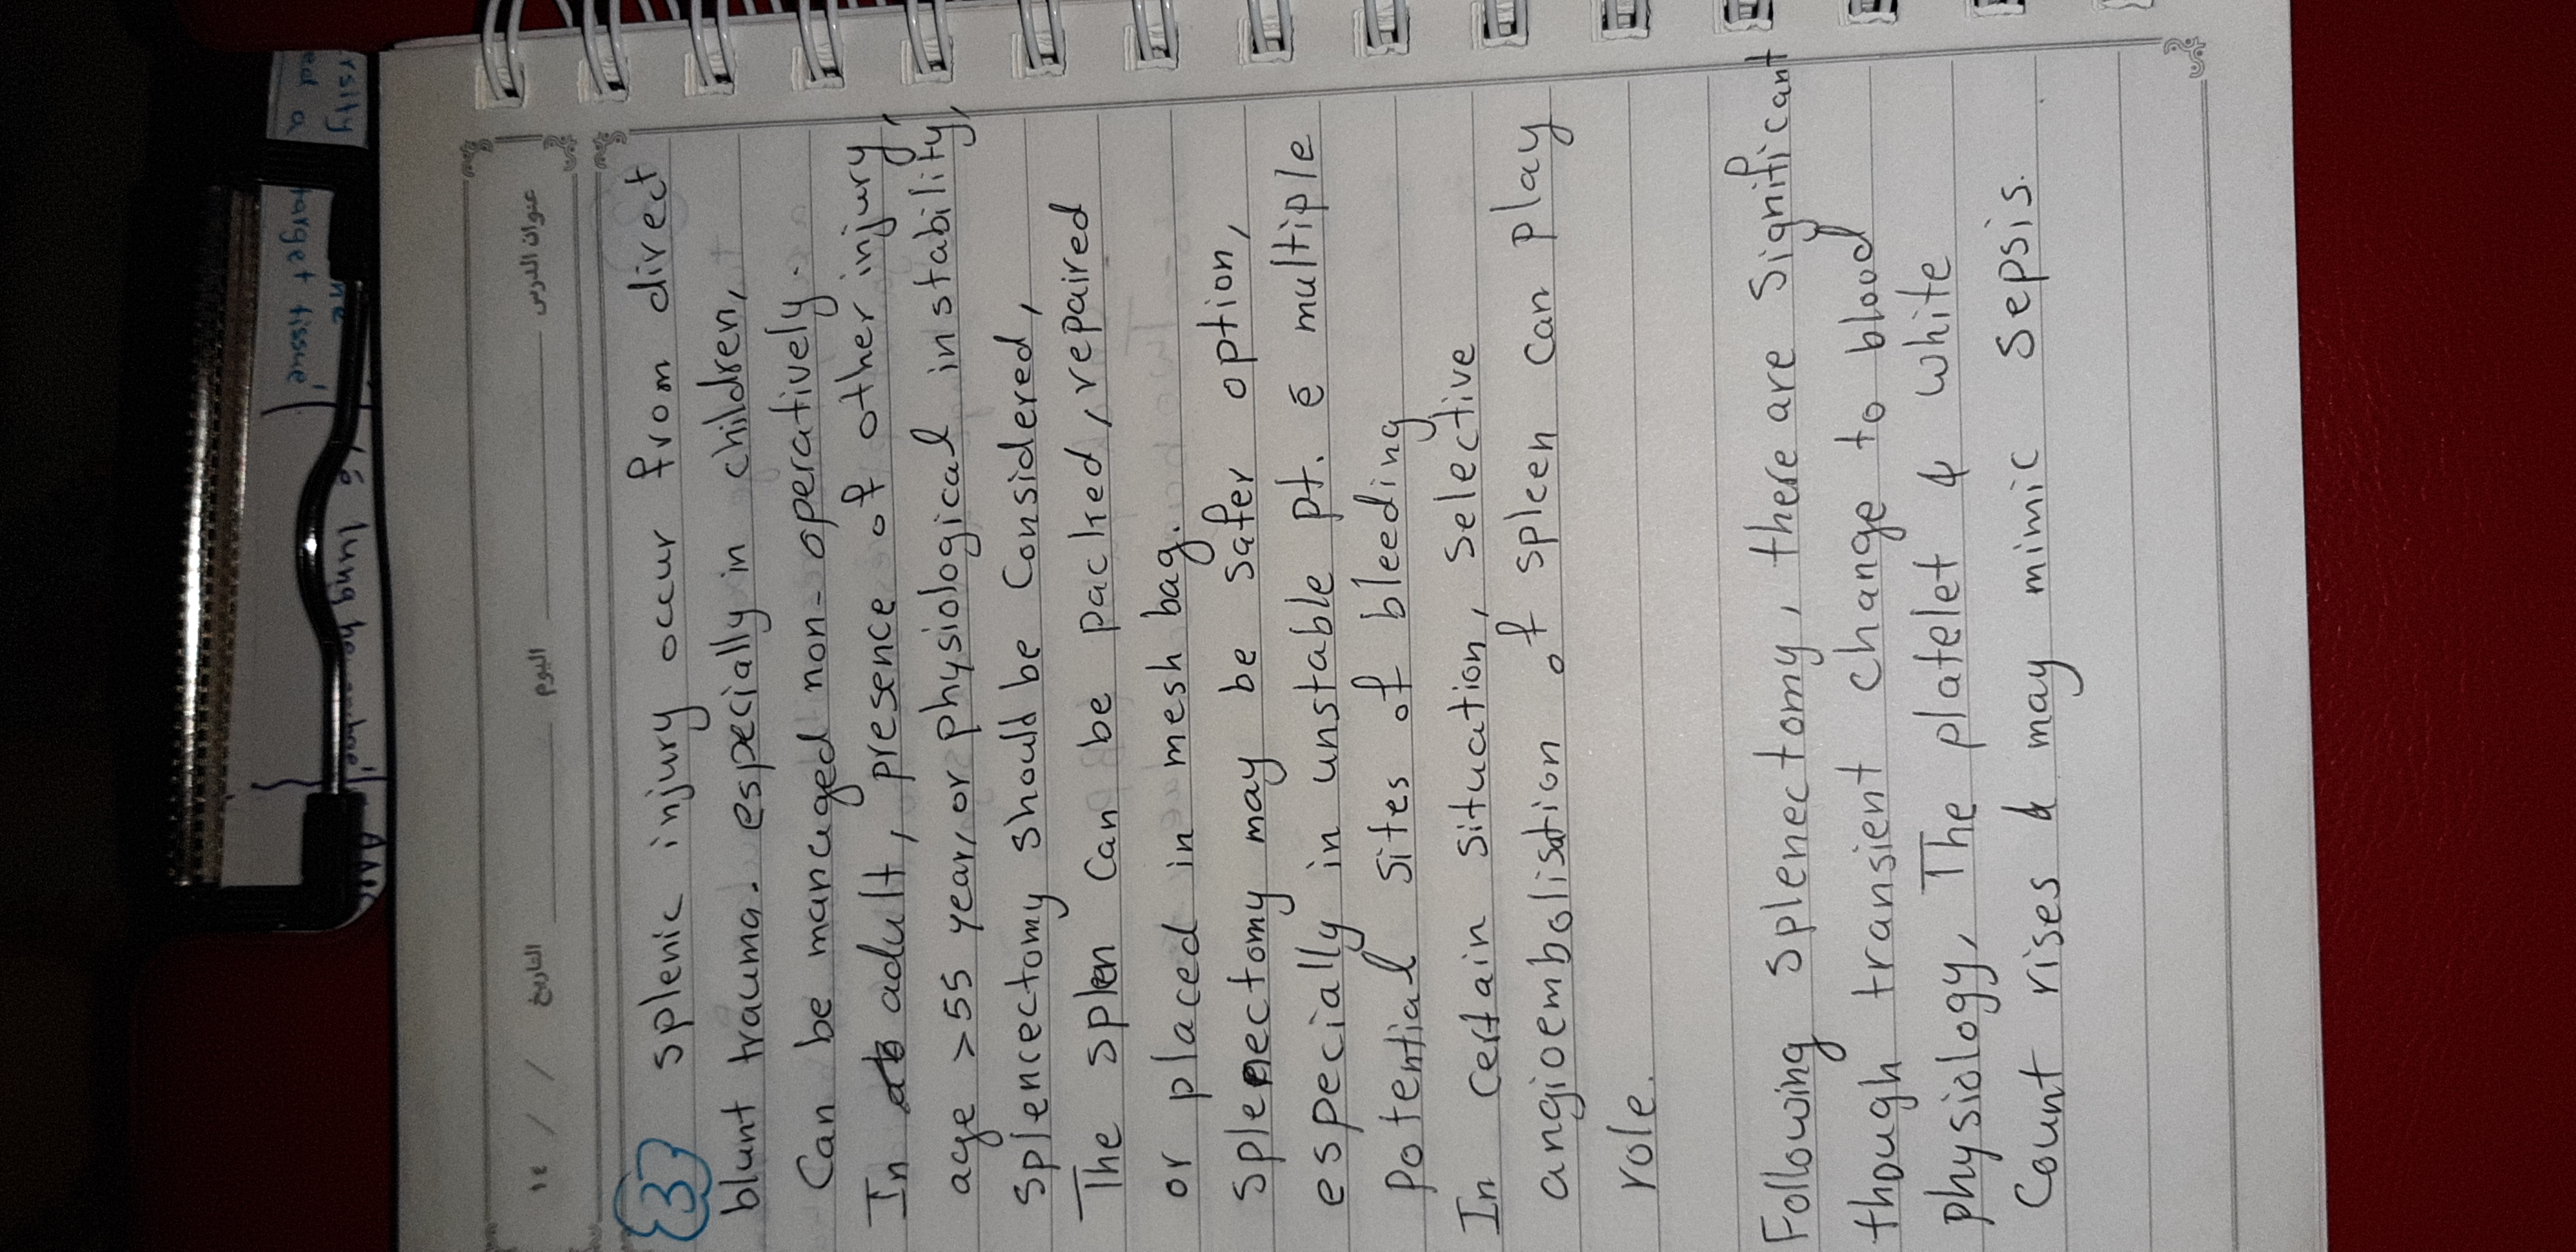 عنوان الدرس
اليوم
التاريخ
/ / ١٤
3 splenic injury occur from direct
blunt trauma. especially in children,
Can be managed non-operatively.
In adult, presence of other injury,
age >55 year, or physiological instability,
splencectomy should be Considered,
The spleen Can be packed, repaired
or placed in mesh bag.
splenectomy may be safer option,
especially in unstable pt. é multiple
potential sites of bleeding
In Certain situation, selective
angioembolisation of spleen Can play
role.
Following splenectomy, there are significant
though transient change to blood
physiology, The platelet & white
Count rises & may mimic sepsis.
rsity
ed a
target tissue
lung